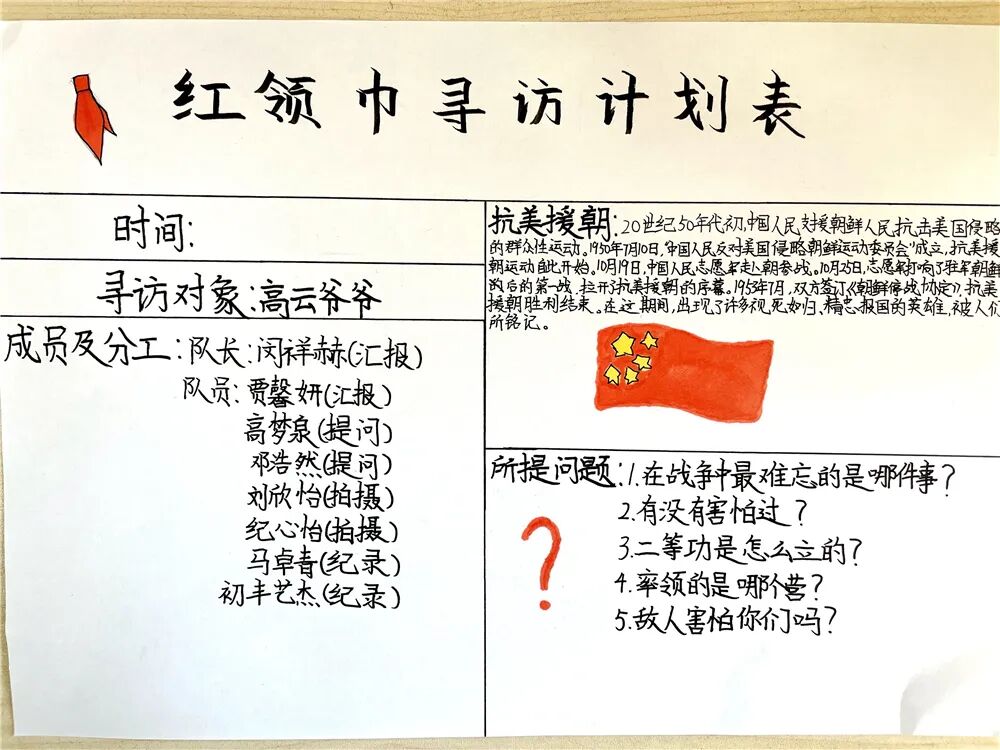 红领巾寻访计划表
时间:
寻访对象:高云爷爷
成员及分工:队长:闵祥赫(汇报)
队员:贾馨妍(汇报)
高梦泉(提问)
邓浩然(提问)
刘欣怡(拍摄)
纪心怡(拍摄)
马卓青(纪录)
初丰艺杰(纪录)
抗美援朝:20世纪50年代初,中国人民支援朝鲜人民,抗击美国侵略
的群众性运动。1950年7月10日,"中国人民反对美国侵略朝鲜运动委员会"成立,抗美援
朝运动自此开始。10月19日,中国人民志愿军赴朝参战。10月25日,志愿军打响了驻军朝鲜
的后的第一战,拉开了抗美援朝的序幕。1953年7月,双方签订《朝鲜停战协定》,抗美
援朝胜利结束。在这期间,出现了许多视死如归、精忠报国的英雄,被人们
所铭记。
所提问题:1.在战争中最难忘的是哪件事?
2.有没有害怕过?
3.二等功是怎么立的?
4.率领的是哪个营?
5.敌人害怕你们吗?
?